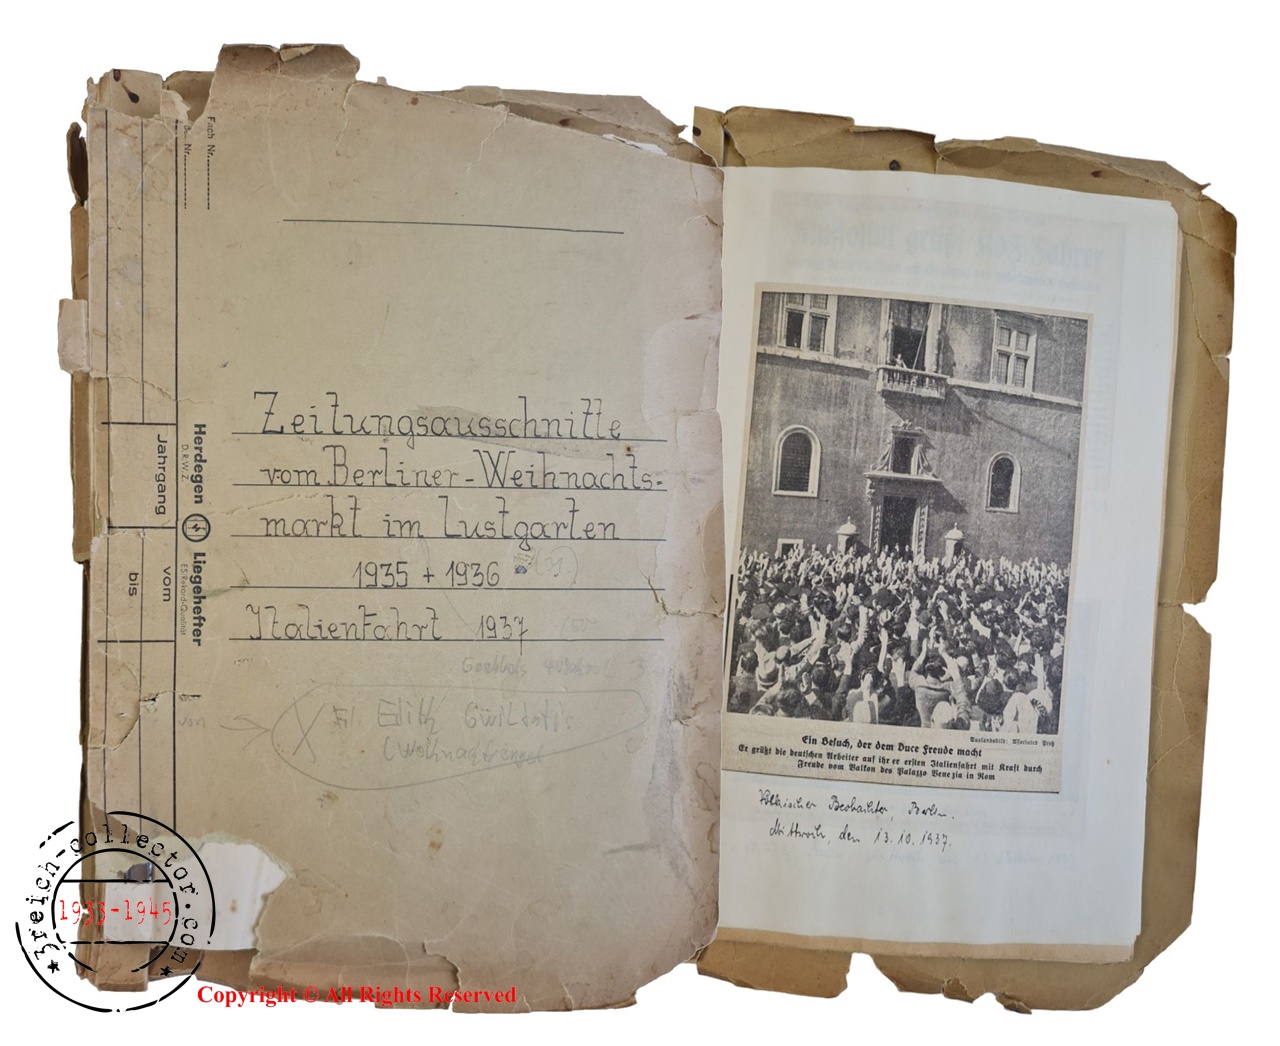 Fach Nr.
Nr.
Jahrgang
vom
bis
Herdegen Liegehefter
D.R.W.Z.
Zeitungsausschnitte
vom Berliner-Weihnachts-
markt im Lustgarten
1935 + 1936
Italienfahrt 1937
von
X Frl. Edith
(Weihnachtsengel
Ein Besuch, der dem Duce Freude macht
Er grüßt die deutschen Arbeiter auf ihrer ersten Italienfahrt mit Kraft durch
Freude vom Balkon des Palazzo Venezia in Rom
Völkischer Beobachter, Berlin.
Mittwoch, den 13.10.1937.
3reich-collector.com
1933-1945
Copyright © All Rights Reserved